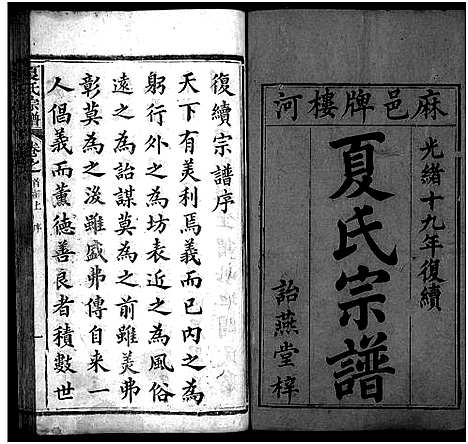 麻邑牌樓河
光緒十九年復續
夏氏宗譜
詒燕堂梓
復續宗譜序
天下有美利焉義而已內之為
躬行外之為坊表近之為風俗
遠之為詒謀莫為之前雖美弗
彰莫為之後雖盛弗傳自来一
人倡義而薰德善良者積數世
夏氏宗譜
卷之首
上
序
一